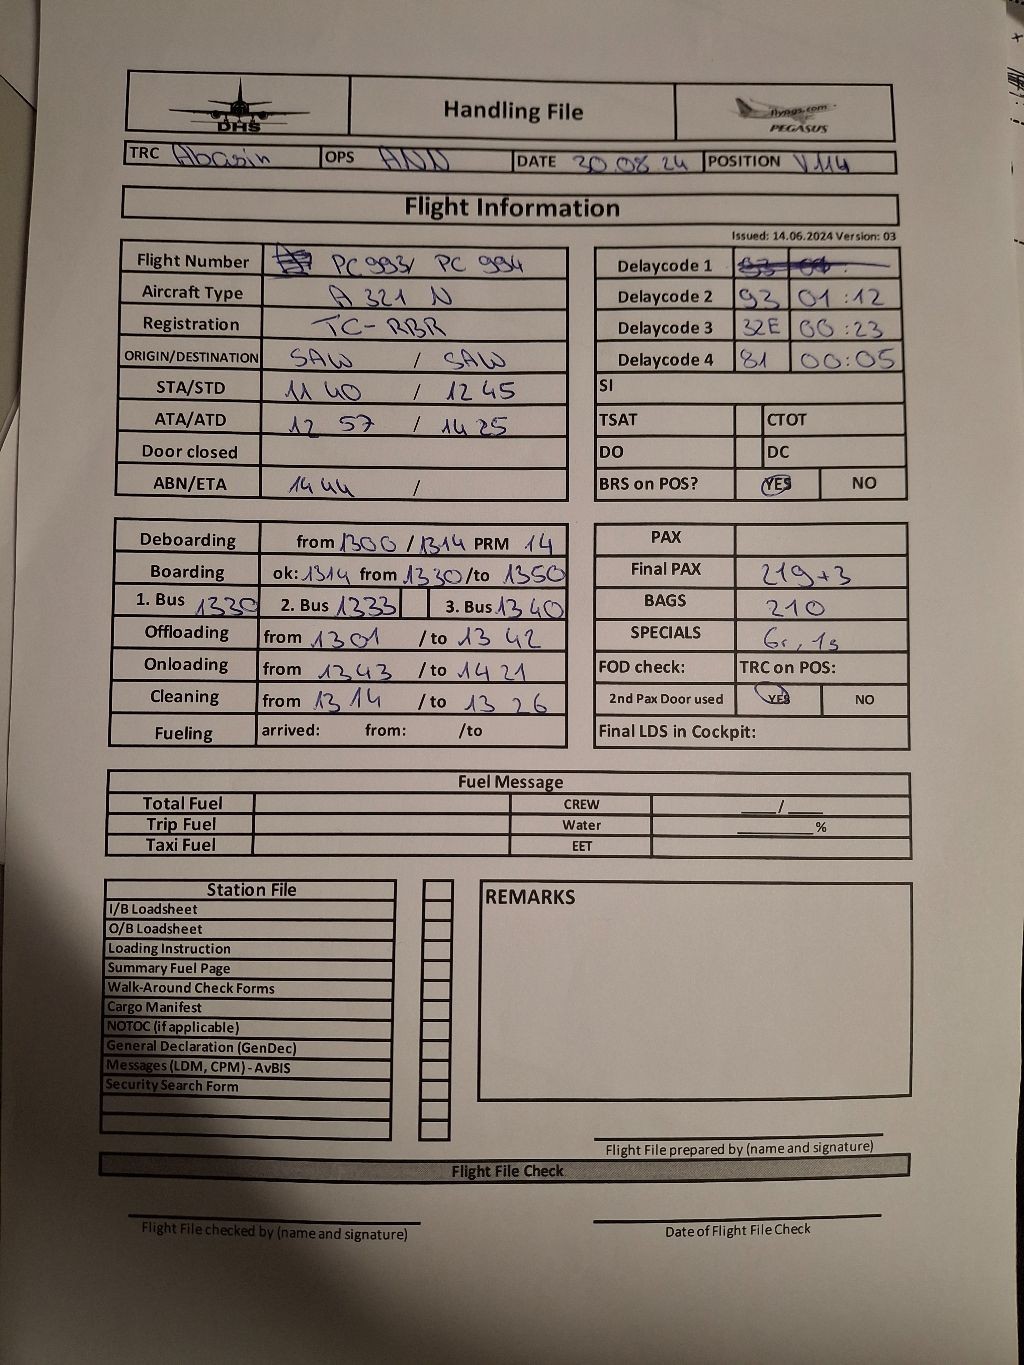 DHS
Handling File
flypgs.com
PEGASUS
TRC Abasin OPS ANN DATE 30.08.24 POSITION V114
Flight Information
Issued: 14.06.2024 Version: 03
Flight Number PC 993/ PC 994
Aircraft Type A 321 N
Registration TC-RBR
ORIGIN/DESTINATION SAW / SAW
STA/STD 11 40 / 12 45
ATA/ATD 12 57 / 14 25
Door closed
ABN/ETA 14 44 /
Delaycode 1
Delaycode 2 93 01:12
Delaycode 3 32E 00:23
Delaycode 4 81 00:05
SI
TSAT CTOT
DO DC
BRS on POS? YES NO
Deboarding from 1300 / 1314 PRM 14
Boarding ok: 1314 from 1330 /to 1350
1. Bus 1330 2. Bus 1333 3. Bus 1340
Offloading from 1301 / to 13 42
Onloading from 1343 / to 1421
Cleaning from 1314 / to 13 26
Fueling arrived: from: /to
PAX
Final PAX 219+3
BAGS 210
SPECIALS 6r, 1s
FOD check: TRC on POS:
2nd Pax Door used YES NO
Final LDS in Cockpit:
Fuel Message
Total Fuel CREW ____/____
Trip Fuel Water ________%
Taxi Fuel EET
Station File
I/B Loadsheet
O/B Loadsheet
Loading Instruction
Summary Fuel Page
Walk-Around Check Forms
Cargo Manifest
NOTOC (if applicable)
General Declaration (GenDec)
Messages (LDM, CPM) - AvBIS
Security Search Form
REMARKS
Flight File prepared by (name and signature)
Flight File Check
Flight File checked by (name and signature)
Date of Flight File Check